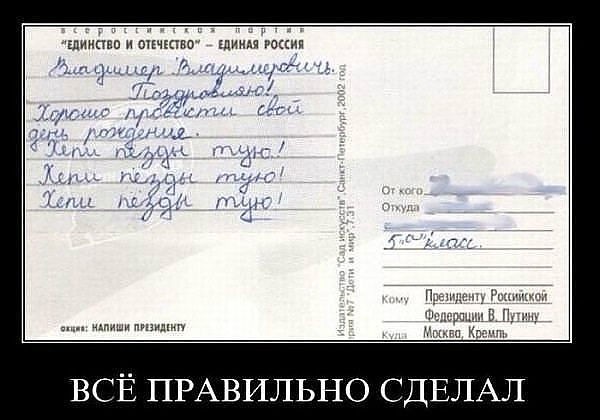 всероссийская партия
"ЕДИНСТВО И ОТЕЧЕСТВО" – ЕДИНАЯ РОССИЯ
Владимер Владимерович.
Поздровляю!
Хорошо провести свой
день рождение.
Хепи пёзды тую!
Хепи пёзды тую!
Хепи пёзды тую!
акция: НАПИШИ ПРЕЗИДЕНТУ
Издательство "Сад искусств", Санкт-Петербург, 2002 год
рия №7 "Дети и мир", 7.31
От кого
Откуда
5 "а" класс.
Кому Президенту Российской
Федерации В. Путину
Куда Москва, Кремль
ВСЁ ПРАВИЛЬНО СДЕЛАЛ